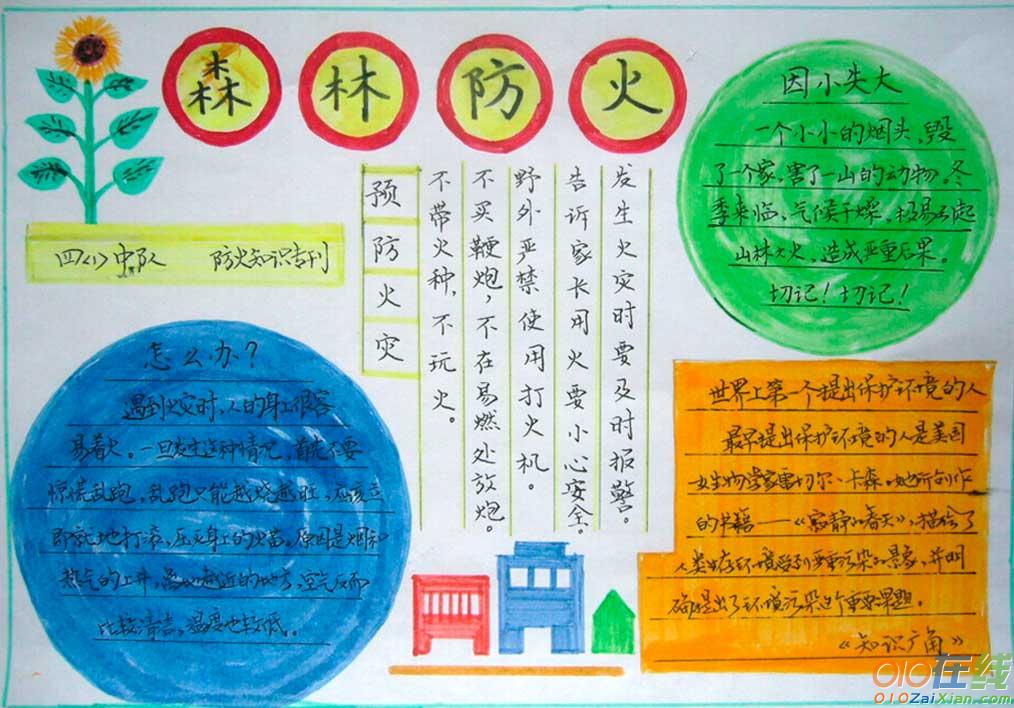 森林防火
四〈1〉中队 防火知识专刊
因小失大
一个小小的烟头，毁
了一个家，害了一山的动物。冬
季来临，气候干燥，极易引起
山林大火，造成严重后果。
切记！切记！
预防火灾
不带火种，不玩火。
不买鞭炮，不在易燃处放炮。
野外严禁使用打火机。
告诉家长用火要小心安全。
发生火灾时要及时报警。
怎么办？
遇到火灾时，人的身上很容
易着火。一旦发生这种情况，首先不要
惊慌乱跑，乱跑只能越烧越旺，应该立
即就地打滚，压灭身上的火苗。原因是烟和
热气的上升，离地越近的地方，空气反而
比较清洁，温度也较低。
世界上第一个提出保护环境的人
最早提出保护环境的人是美国
女生物学家雷切尔·卡森。她所创作
的书籍——《寂静的春天》，描绘了
人类生存环境受到严重污染的景象，并明
确提出了环境污染这个重要课题。
《知识广角》
010在线
010ZaiXian.com